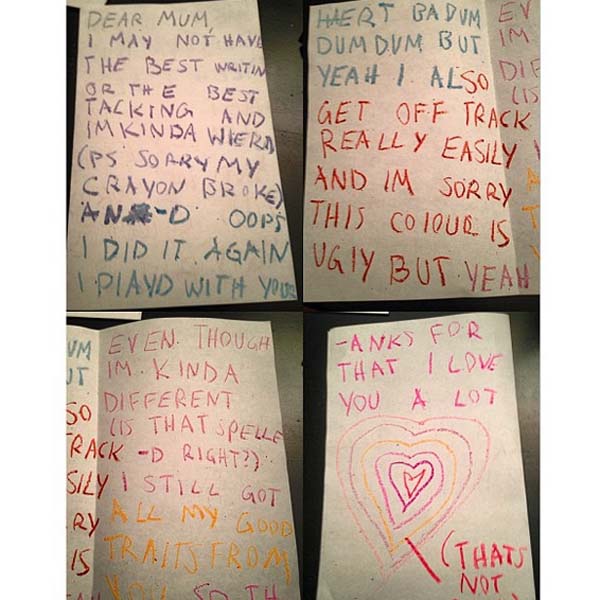 DEAR MUM,
I MAY NOT HAVE
THE BEST WRITIN
OR THE BEST
TACKING AND
IM KINDA WIERD
(PS SORRY MY
CRAYON BROKE)
AN -D OOPS
I DID IT AGAIN
I PLAYD WITH YOUR
HAERT BA DUM
DUM DUM BUT
YEAH I ALSO
GET OFF TRACK
REALLY EASILY
AND IM SORRY
THIS COLOUR IS
UGLY BUT YEAH
EV
IM
DIF
(IS
UM
UT
SO
RACK
SILY
RY
IS
EVEN THOUGH
IM KINDA
DIFFERENT
(IS THAT SPELLE
-D RIGHT?)
I STILL GOT
ALL MY GOOD
TRAITS FROM
YOU SO TH
-ANKS FOR
THAT I LOVE
YOU A LOT
(THATS
NOT